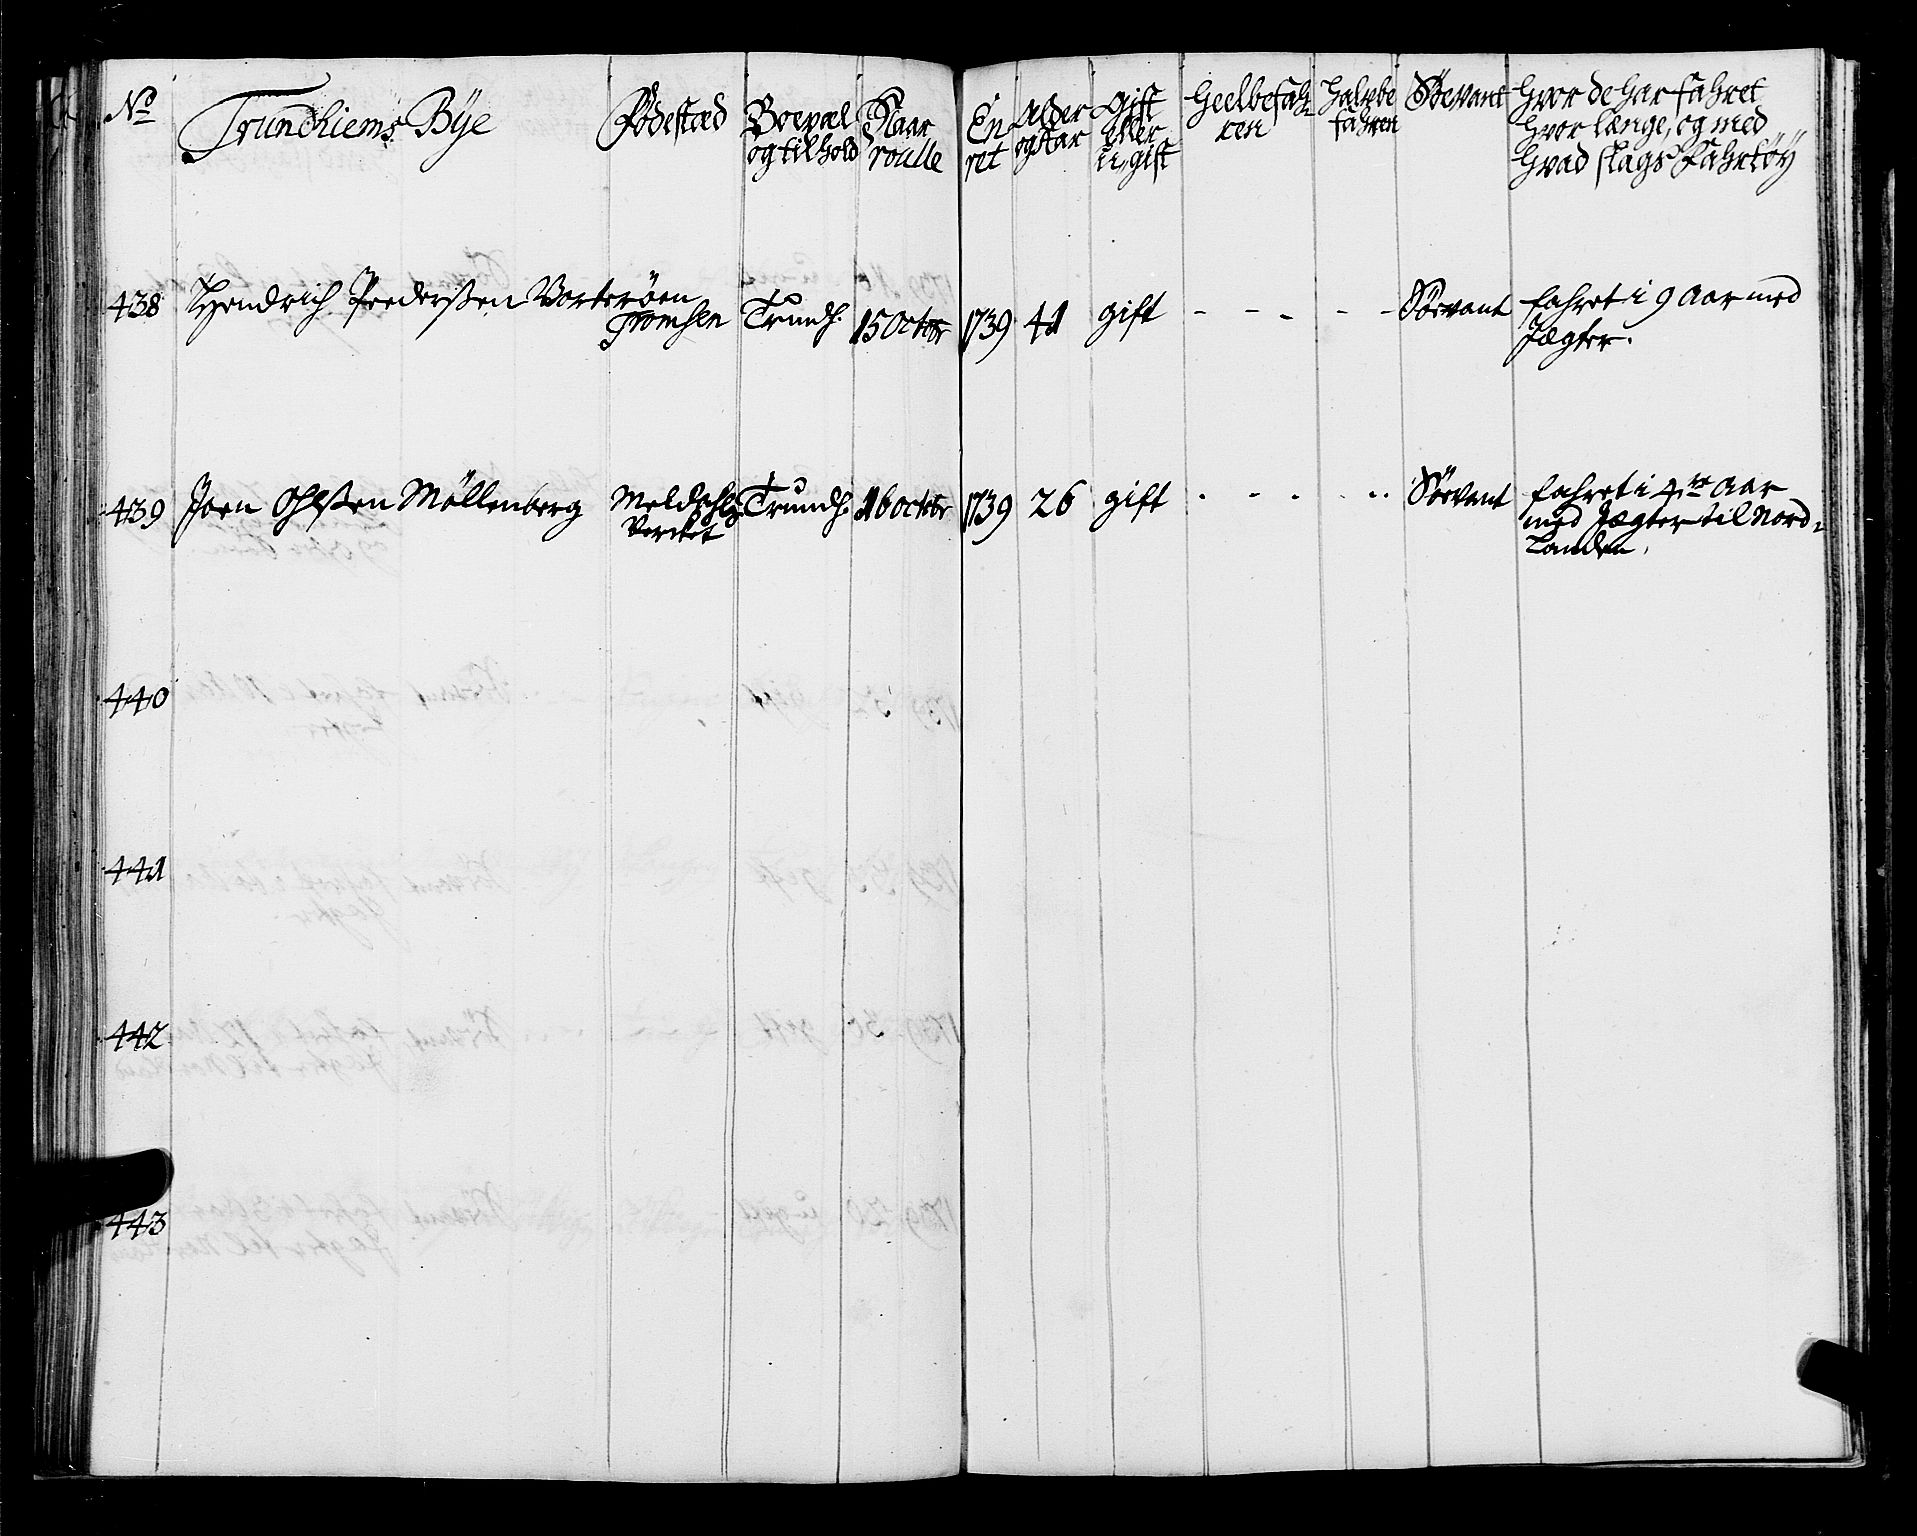 No Trundhiems Bÿe Fødestæd Boepæl og tilhold Staar roulle En ret Alder og staar gift eller u-gift Heelbefahren halvbe fahren Søevant hvor de har fahret
hvor længe, og med
hvad slags Fahrtøÿ
438 Hendrich Peedersßen Vorterøen Tromsen Trundh. 15 Octobr 1739 41 gift - - - - - Søevant fahret i 9 Aar med
Jægter.
439 Joen Ohlsßen Møllenberg Meldahls Verket Trundh. 16 octobr 1739 26 gift - - - - - Søevant fahret i 4re Aar
med Jægter til Nord-
Landen.
440
441
442
443